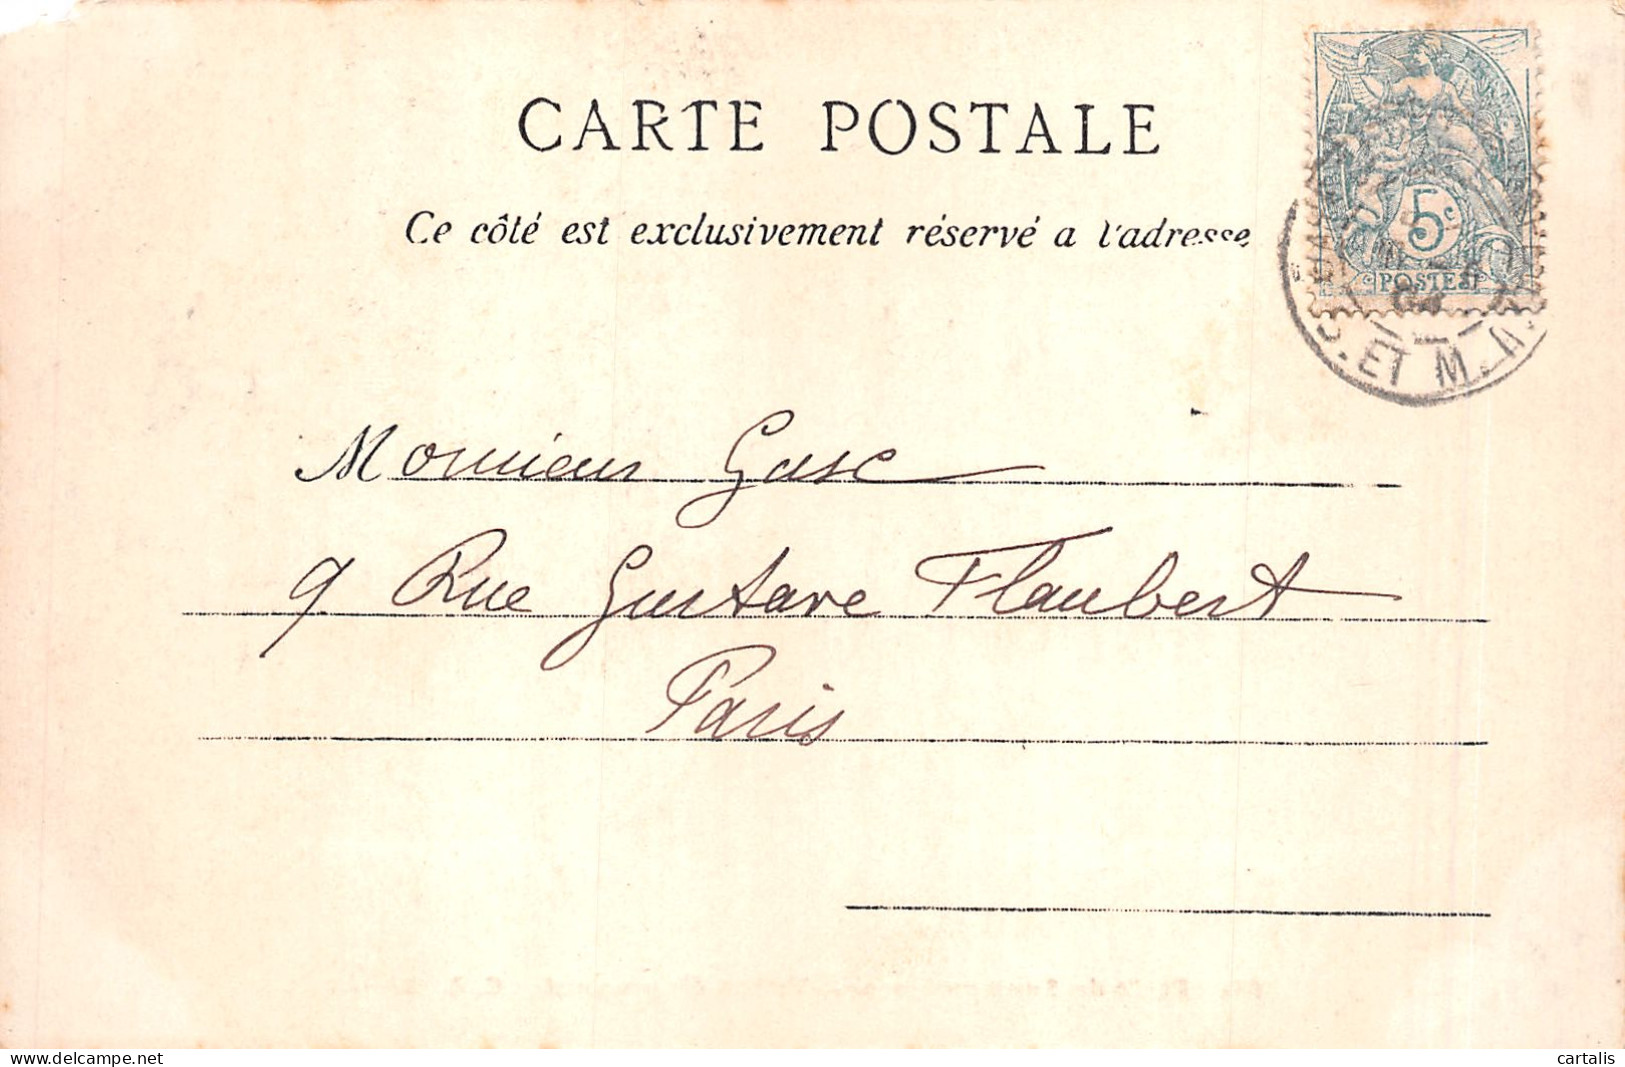 CARTE POSTALE
Ce côté est exclusivement réservé a l'adresse
5c
POSTES
ET M.
Monsieur Gasc
9 Rue Gustave Flaubert
Paris
cartalis